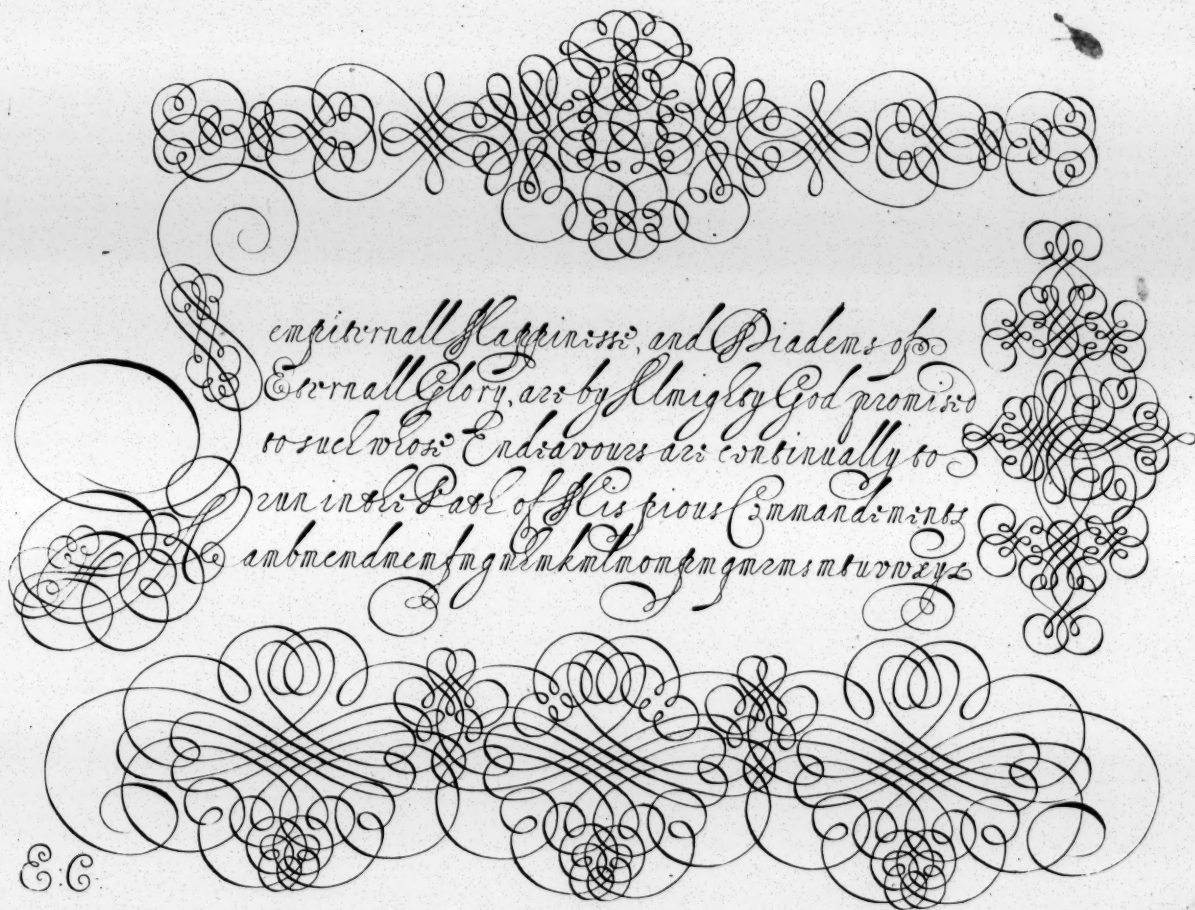 Sempiternall Happinesse, and Diadems of
Eternall Glory, are by Almighty God promised
to such whose Endeavours are continually to
run in the Path of His pious Commandements
ambmcmdmemfmgmhmkmlmompmqmrmsmtuvwxyz
E. C